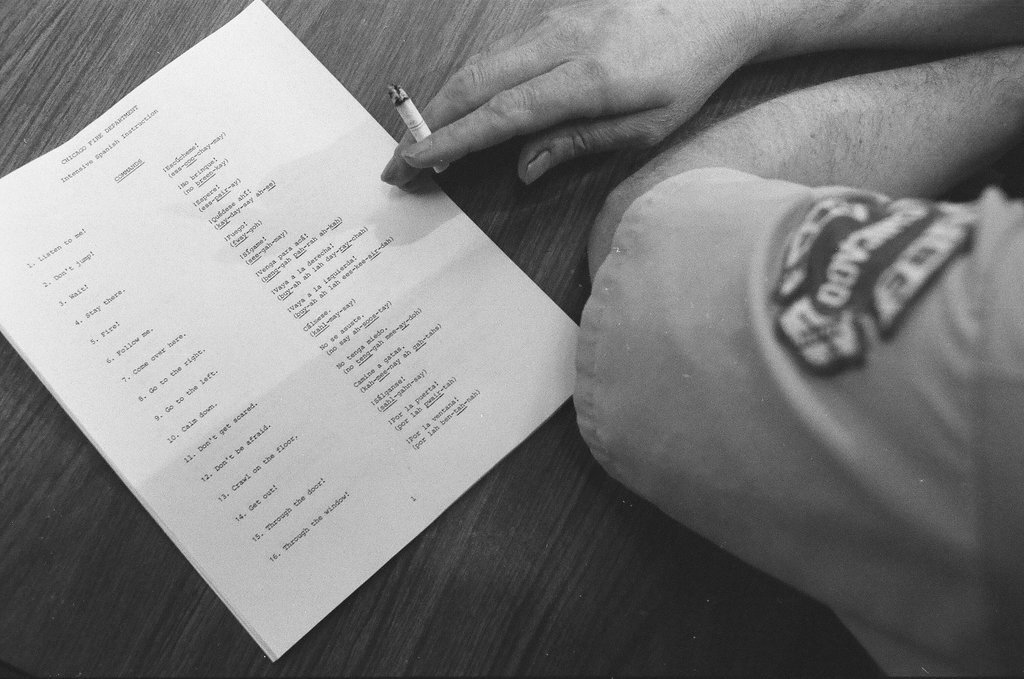 CHICAGO FIRE DEPARTMENT
Intensive Spanish Instruction
COMMANDS
1. Listen to me!
¡Escúcheme!
(ess-coo-chay-may)
2. Don't jump!
¡No brinque!
(no breen-kay)
3. Wait!
¡Espere!
(ess-pair-ay)
4. Stay there.
¡Quédese ahí!
(kay-day-say ah-ee)
5. Fire!
¡Fuego!
(fway-goh)
6. Follow me.
¡Sígame!
(see-gah-may)
7. Come over here.
¡Venga para acá!
(beng-gah pah-rah ah-kah)
8. Go to the right.
¡Vaya a la derecha!
(buy-ah ah lah day-ray-chah)
9. Go to the left.
¡Vaya a la izquierda!
(buy-ah ah lah ees-kee-air-dah)
10. Calm down.
Cálmese.
(kahl-may-say)
11. Don't get scared.
No se asuste.
(no say ah-soos-tay)
12. Don't be afraid.
No tenga miedo.
(no teng-gah mee-ay-doh)
13. Crawl on the floor.
Camine a gatas.
(kah-mee-nay ah gah-tahs)
14. Get out!
¡Sálganse!
(sahl-gahn-say)
15. Through the door!
¡Por la puerta!
(por lah pwair-tah)
16. Through the window!
¡Por la ventana!
(por lah ben-tah-nah)
1
FIRE
CHICAGO